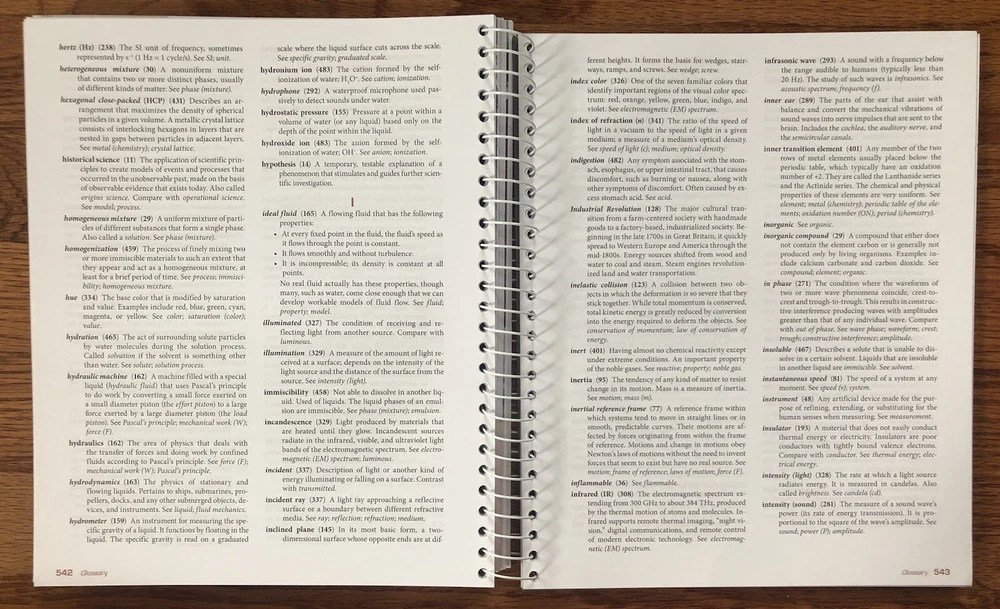 hertz (Hz) (238) The SI unit of frequency, sometimes
represented by s⁻¹ (1 Hz = 1 cycle/s). See SI; unit.
heterogeneous mixture (30) A nonuniform mixture
that contains two or more distinct phases, usually
of different kinds of matter. See phase (mixture).
hexagonal close-packed (HCP) (431) Describes an ar-
rangement that maximizes the density of spherical
particles in a given volume. A metallic crystal lattice
consists of interlocking hexagons in layers that are
nested in gaps between particles in adjacent layers.
See metal (chemistry); crystal lattice.
historical science (11) The application of scientific prin-
ciples to create models of events and processes that
occurred in the unobservable past, made on the basis
of observable evidence that exists today. Also called
origins science. Compare with operational science.
See model; process.
homogeneous mixture (29) A uniform mixture of parti-
cles of different substances that form a single phase.
Also called a solution. See phase (mixture).
homogenization (459) The process of finely mixing two
or more immiscible materials to such an extent that
they appear and act as a homogeneous mixture, at
least for a brief period of time. See process; immisci-
bility; homogeneous mixture.
hue (334) The base color that is modified by saturation
and value. Examples include red, blue, green, cyan,
magenta, or yellow. See color; saturation (color);
value.
hydration (465) The act of surrounding solute particles
by water molecules during the solution process.
Called solvation if the solvent is something other
than water. See solute; solution process.
hydraulic machine (162) A machine filled with a special
liquid (hydraulic fluid) that uses Pascal's principle
to do work by converting a small force exerted on
a small diameter piston (the effort piston) to a large
force exerted by a large diameter piston (the load
piston). See Pascal's principle; mechanical work (W);
force (F).
hydraulics (162) The area of physics that deals with
the transfer of forces and doing work by confined
fluids according to Pascal's principle. See force (F);
mechanical work (W); Pascal's principle.
hydrodynamics (163) The physics of stationary and
flowing liquids. Pertains to ships, submarines, pro-
pellers, docks, and any other submerged objects, de-
vices, and instruments. See liquid; fluid mechanics.
hydrometer (159) An instrument for measuring the spe-
cific gravity of a liquid. It functions by floating in the
liquid. The specific gravity is read on a graduated
scale where the liquid surface cuts across the scale.
See specific gravity; graduated scale.
hydronium ion (483) The cation formed by the self-
ionization of water; H₃O⁺. See cation; ionization.
hydrophone (292) A waterproof microphone used pas-
sively to detect sounds under water.
hydrostatic pressure (155) Pressure at a point within a
volume of water (or any liquid) based only on the
depth of the point within the liquid.
hydroxide ion (483) The anion formed by the self-
ionization of water; OH⁻. See anion; ionization.
hypothesis (14) A temporary, testable explanation of a
phenomenon that stimulates and guides further scien-
tific investigation.
I
ideal fluid (165) A flowing fluid that has the following
properties:
• At every fixed point in the fluid, the fluid's speed as
it flows through the point is constant.
• It flows smoothly and without turbulence.
• It is incompressible; its density is constant at all
points.
No real fluid actually has these properties, though
many, such as water, come close enough that we can
develop workable models of fluid flow. See fluid;
property; model.
illuminated (327) The condition of receiving and re-
flecting light from another source. Compare with
luminous.
illumination (329) A measure of the amount of light re-
ceived at a surface; depends on the intensity of the
light source and the distance of the surface from the
source. See intensity (light).
immiscibility (458) Not able to dissolve in another liq-
uid. Used of liquids. The liquid phases of an emul-
sion are immiscible. See phase (mixture); emulsion.
incandescence (329) Light produced by materials that
are heated until they glow. Incandescent sources
radiate in the infrared, visible, and ultraviolet light
bands of the electromagnetic spectrum. See electro-
magnetic (EM) spectrum; luminous.
incident (337) Description of light or another kind of
energy illuminating or falling on a surface. Contrast
with transmitted.
incident ray (337) A light ray approaching a reflective
surface or a boundary between different refractive
media. See ray; reflection; refraction; medium.
inclined plane (145) In its most basic form, a two-
dimensional surface whose opposite ends are at dif-
542 Glossary
ferent heights. It forms the basis for wedges, stair-
ways, ramps, and screws. See wedge; screw.
index color (326) One of the seven familiar colors that
identify important regions of the visual color spec-
trum: red, orange, yellow, green, blue, indigo, and
violet. See electromagnetic (EM) spectrum.
index of refraction (n) (341) The ratio of the speed of
light in a vacuum to the speed of light in a given
medium; a measure of a medium's optical density.
See speed of light (c); medium; optical density.
indigestion (482) Any symptom associated with the stom-
ach, esophagus, or upper intestinal tract, that causes
discomfort, such as burning or nausea, along with
other symptoms of discomfort. Often caused by ex-
cess stomach acid. See acid.
Industrial Revolution (128) The major cultural tran-
sition from a farm-centered society with handmade
goods to a factory-based, industrialized society. Be-
ginning in the late 1700s in Great Britain, it quickly
spread to Western Europe and America through the
mid-1800s. Energy sources shifted from wood and
water to coal and steam. Steam engines revolution-
ized land and water transportation.
inelastic collision (123) A collision between two ob-
jects in which the deformation is so severe that they
stick together. While total momentum is conserved,
total kinetic energy is greatly reduced by conversion
into the energy required to deform the objects. See
conservation of momentum; law of conservation of
energy.
inert (401) Having almost no chemical reactivity except
under extreme conditions. An important property
of the noble gases. See reactive; property; noble gas.
inertia (95) The tendency of any kind of matter to resist
change in its motion. Mass is a measure of inertia.
See motion; mass (m).
inertial reference frame (77) A reference frame within
which systems tend to move in straight lines or in
smooth, predictable curves. Their motions are af-
fected by forces originating from within the frame
of reference. Motions and change in motions obey
Newton's laws of motion without the need to invent
forces that seem to exist but have no real source. See
motion; frame of reference; laws of motion; force (F).
inflammable (36) See flammable.
infrared (IR) (308) The electromagnetic spectrum ex-
tending from 300 GHz to about 384 THz, produced
by the thermal motion of atoms and molecules. In-
frared supports remote thermal imaging, "night vi-
sion," digital communications, and remote control
of modern electronic technology. See electromag-
netic (EM) spectrum.
infrasonic wave (293) A sound with a frequency below
the range audible to humans (typically less than
20 Hz). The study of such waves is infrasonics. See
acoustic spectrum; frequency (f).
inner ear (289) The parts of the ear that assist with
balance and convert the mechanical vibrations of
sound waves into nerve impulses that are sent to the
brain. Includes the cochlea, the auditory nerve, and
the semicircular canals.
inner transition element (401) Any member of the two
rows of metal elements usually placed below the
periodic table, which typically have an oxidation
number of +2. They are called the Lanthanide series
and the Actinide series. The chemical and physical
properties of these elements are very uniform. See
element; metal (chemistry); periodic table of the ele-
ments; oxidation number (ON); period (chemistry).
inorganic See organic.
inorganic compound (29) A compound that either does
not contain the element carbon or is generally not
produced only by living organisms. Examples in-
clude calcium carbonate and carbon dioxide. See
compound; element; organic.
in phase (271) The condition where the waveforms of
two or more wave phenomena coincide, crest-to-
crest and trough-to-trough. This results in construc-
tive interference producing waves with amplitudes
greater than that of any individual wave. Compare
with out of phase. See wave phase; waveform; crest;
trough; constructive interference; amplitude.
insoluble (467) Describes a solute that is unable to dis-
solve in a certain solvent. Liquids that are insoluble
in another liquid are immiscible. See solvent.
instantaneous speed (81) The speed of a system at any
moment. See speed (v); system.
instrument (48) Any artificial device made for the pur-
pose of refining, extending, or substituting for the
human senses when measuring. See measurement.
insulator (193) A material that does not easily conduct
thermal energy or electricity. Insulators are poor
conductors with tightly bound valence electrons.
Compare with conductor. See thermal energy; elec-
trical energy.
intensity (light) (328) The rate at which a light source
radiates energy. It is measured in candelas. Also
called brightness. See candela (cd).
intensity (sound) (281) The measure of a sound wave's
power (its rate of energy transmission). It is pro-
portional to the square of the wave's amplitude. See
sound; power (P); amplitude.
Glossary 543